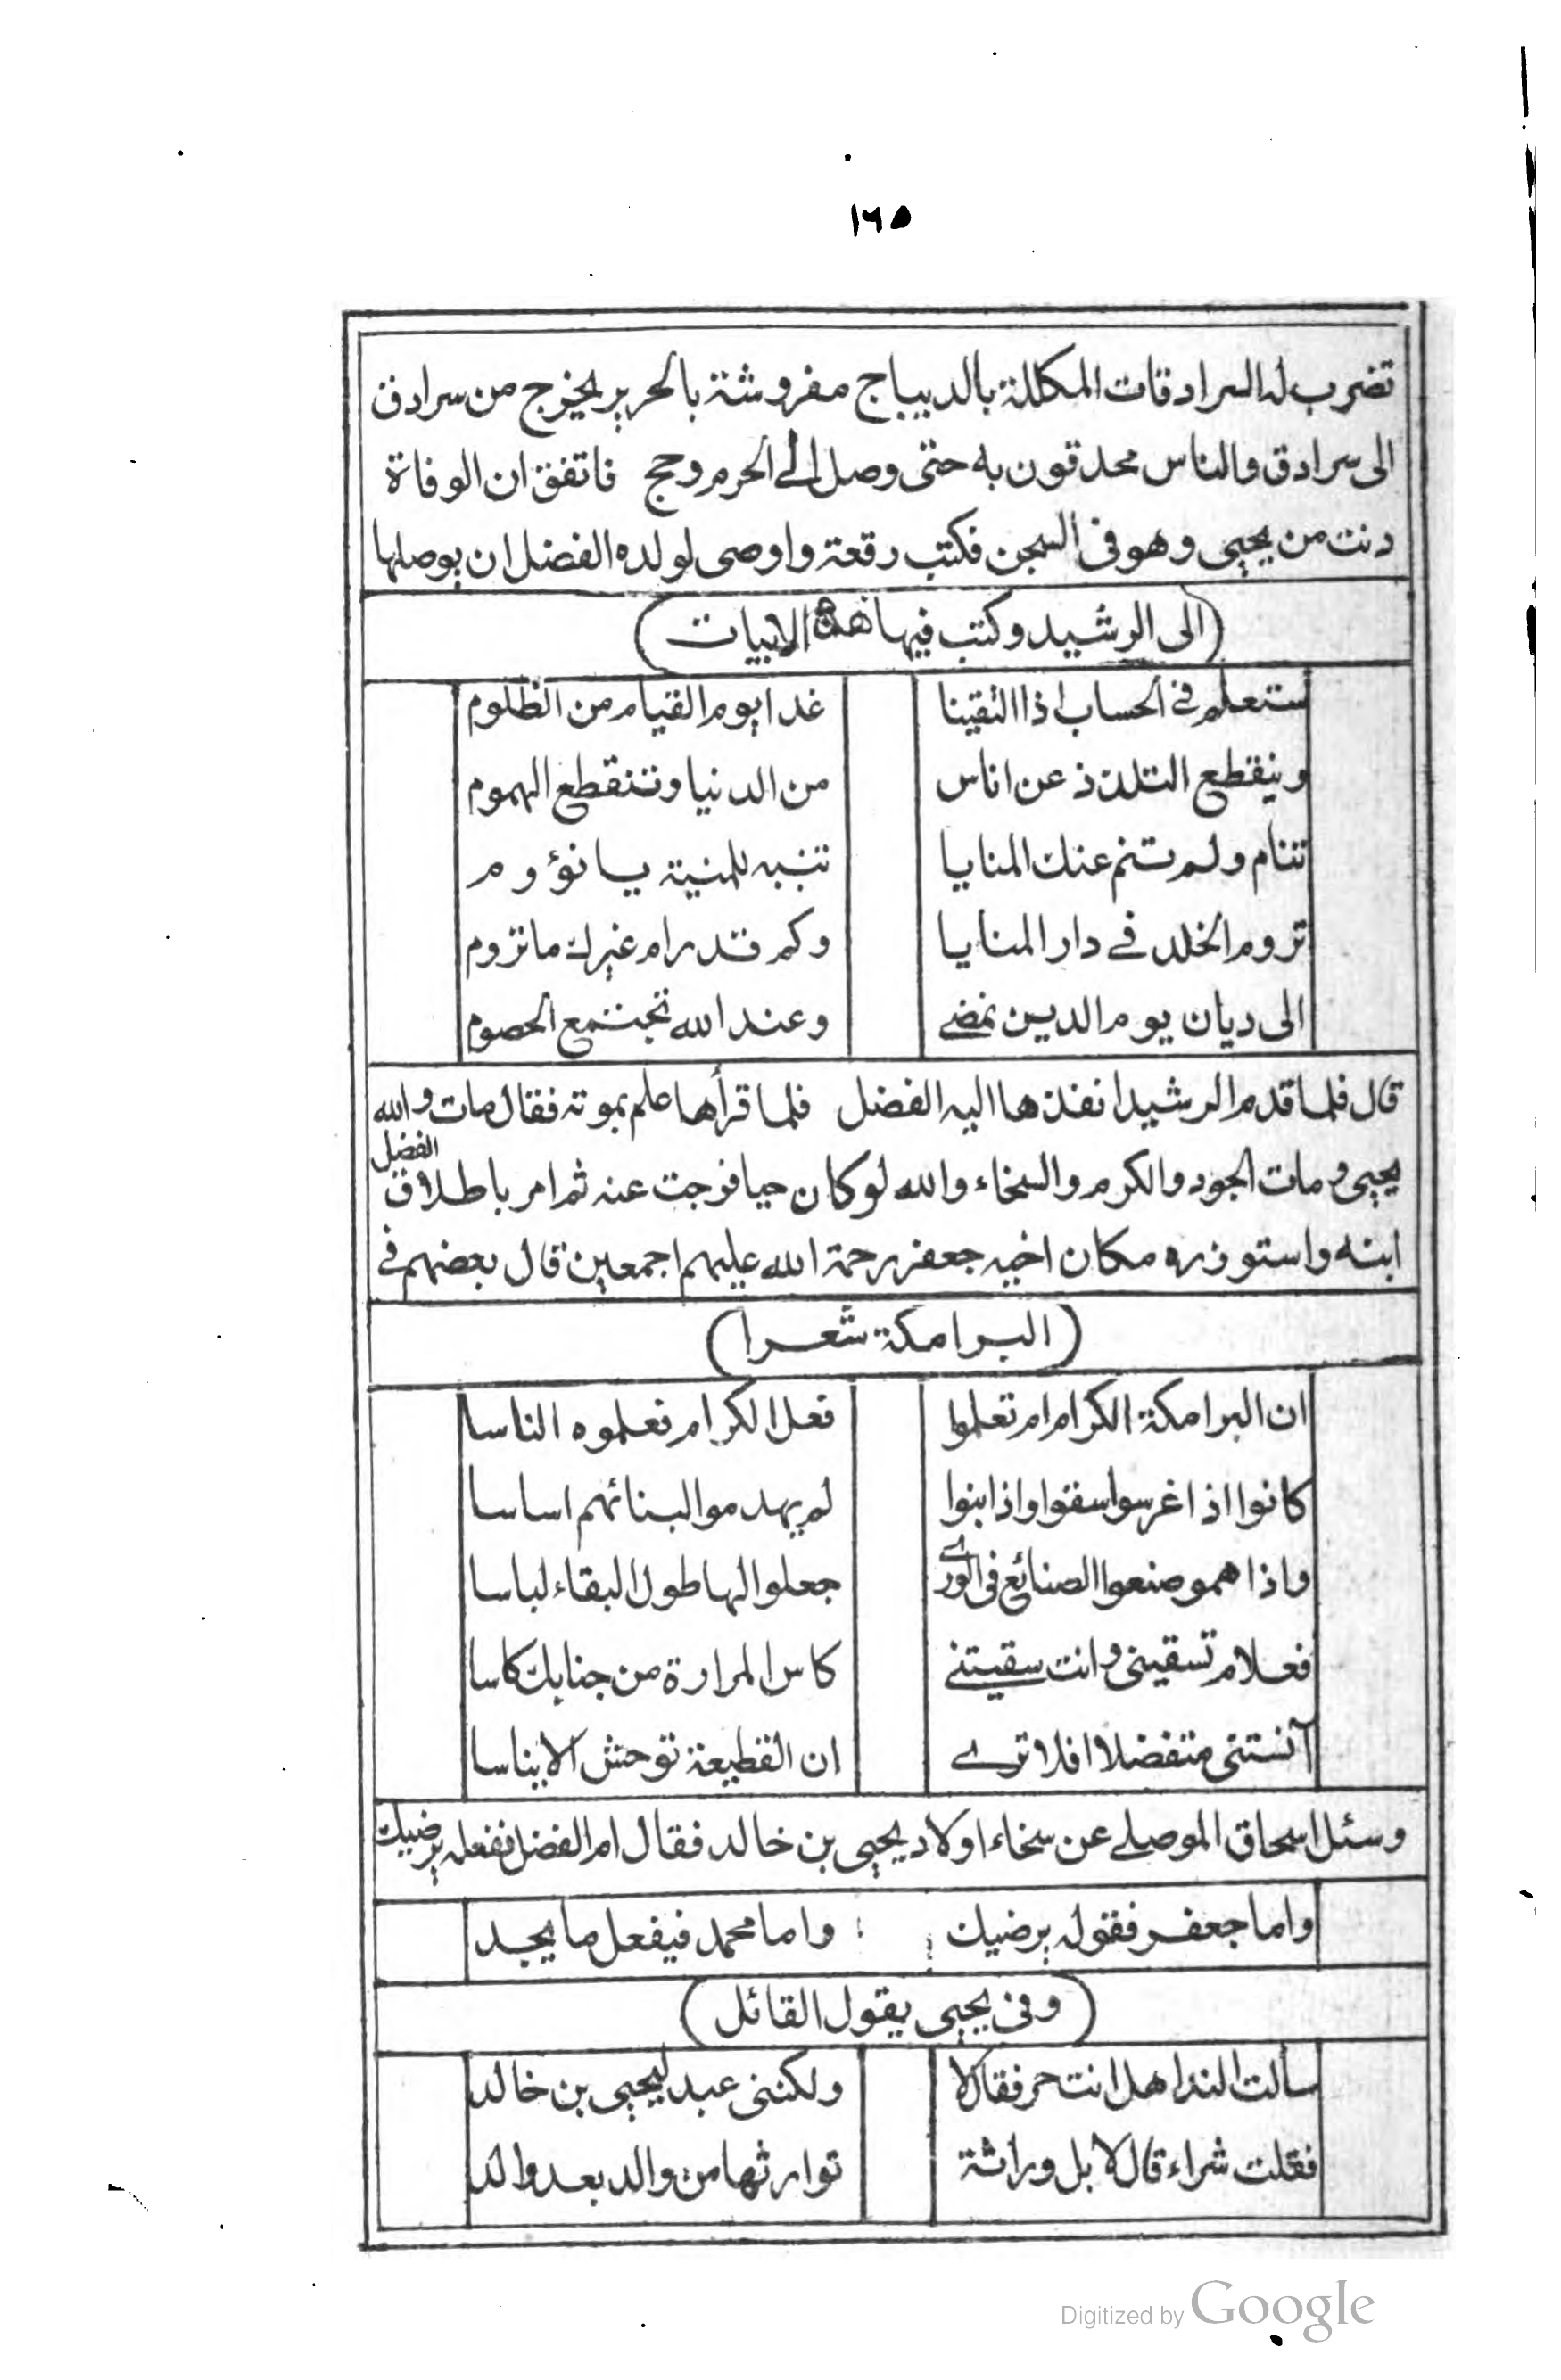 ١٦٥
تضرب له السرادقات المكللة بالديباج مفروشة بالحرير يخرج من سرادق
الى سرادق والناس محدقون به حتى وصل الى الحرم وحج فاتفق ان الوفاة
دنت من يحيى وهو فى السجن فكتب رقعة واوصى لولده الفضل ان يوصلها
(الى الرشيد وكتب فيها هذه الابيات)
ستعلم فى الحساب اذا التقينا غدا يوم القيام من الظلوم
وينقطع التلذذ عن اناس من الدنيا وتنقطع الهموم
تنام ولم تنم عنك المنايا تنبه للمنية يا نؤوم
تروم الخلد فى دار المنايا وكم قد رام غيرك ما تروم
الى ديان يوم الدين نمضى وعند الله تجتمع الخصوم
قال فلما قدم الرشيد انفذها اليه الفضل فلما قرأها علم بموته فقال مات والله
يحيى ومات الجود والكرم والسخاء والله لو كان حيا فرجت عنه ثم امر باطلاق الفضل
ابنه واستوزره مكان اخيه جعفر رحمة الله عليهم اجمعين قال بعضهم فى
(البرامكة شعرا)
ان البرامكة الكرام تعلموا فعل الكرام فعلموه الناسا
كانوا اذا غرسوا سقوا واذا بنوا لم يهدموا لبنائهم اساسا
واذا همو صنعوا الصنائع فى الورى جعلوا لها طول البقاء لباسا
فعلام تسقينى وانت سقيتنى كاس المرارة من جنابك كاسا
آنستنى متفضلا افلا ترى ان القطيعة توحش الايناسا
وسئل اسحاق الموصلى عن سخاء اولاد يحيى بن خالد فقال ام الفضل ففعله يرضيك
واما جعفر فقوله يرضيك واما محمد فيفعل ما يجد
(وفى يحيى يقول القائل)
سألت الندا هل انت حر فقال لا ولكننى عبد ليحيى بن خالد
فقلت شراء قال لا بل وراثة توارثها من والد بعد والد
Digitized by Google